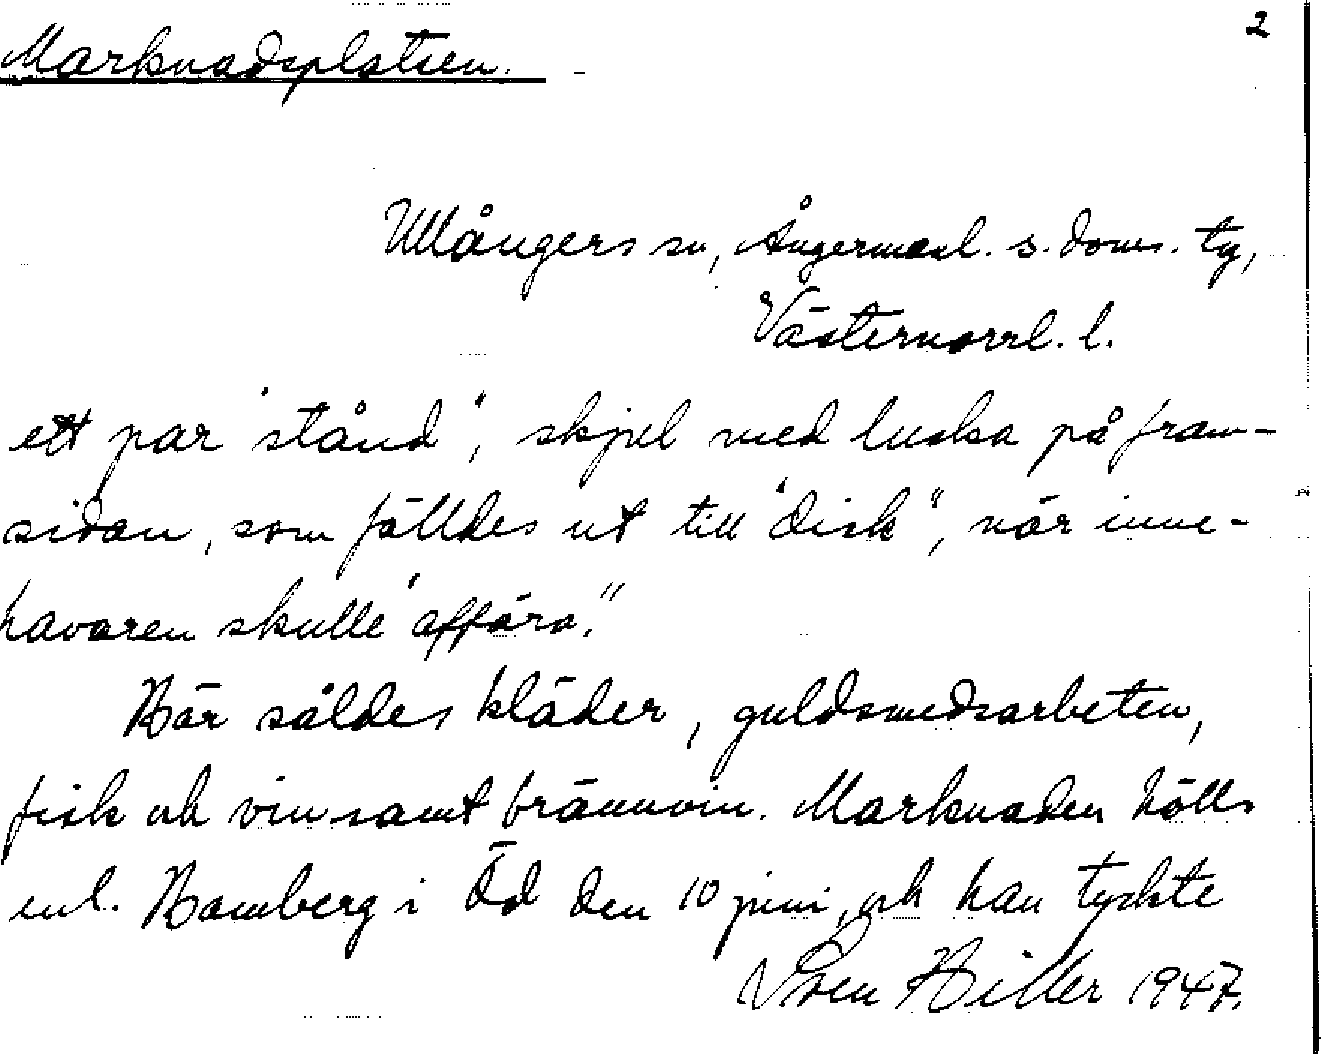 Marknadsplatsen.
2
Ullångers sn, Ångermanl. s. doms. tg,
Västernorrl. l.
ett par "stånd", skjul med lucka på fram-
sidan, som fälldes ut till "disk", när inne-
havaren skulle "affära."
Här såldes kläder, guldsmedsarbeten,
fisk och vin samt brännvin. Marknaden hölls
enl. Hamberg i Äd den 10 juni, och han tyckte
Sven Hiller 1947.